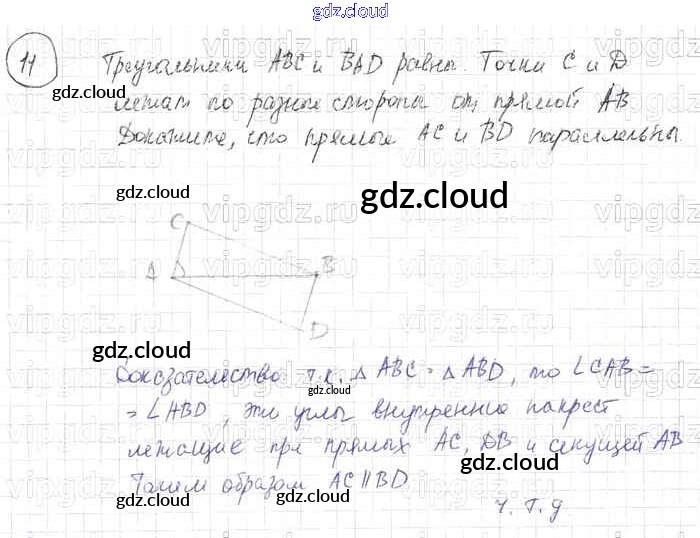 gdz.cloud
11 Треугольники ABC и BAD равны. Точки C и D
лежат по разные стороны от прямой AB
Докажите, что прямые AC и BD параллельны.
gdz.cloud
gdz.cloud
gdz.cloud
gdz.cloud
C
A
B
D
gdz.cloud
Доказательство т.к. △ ABC = △ ABD, то ∠CAB =
= ∠ABD, эти углы внутренние накрест
лежащие при прямых AC, DB и секущей AB
Таким образом AC || BD
ч.т.д
gdz.cloud
gdz.cloud
gdz.cloud
gdz.cloud